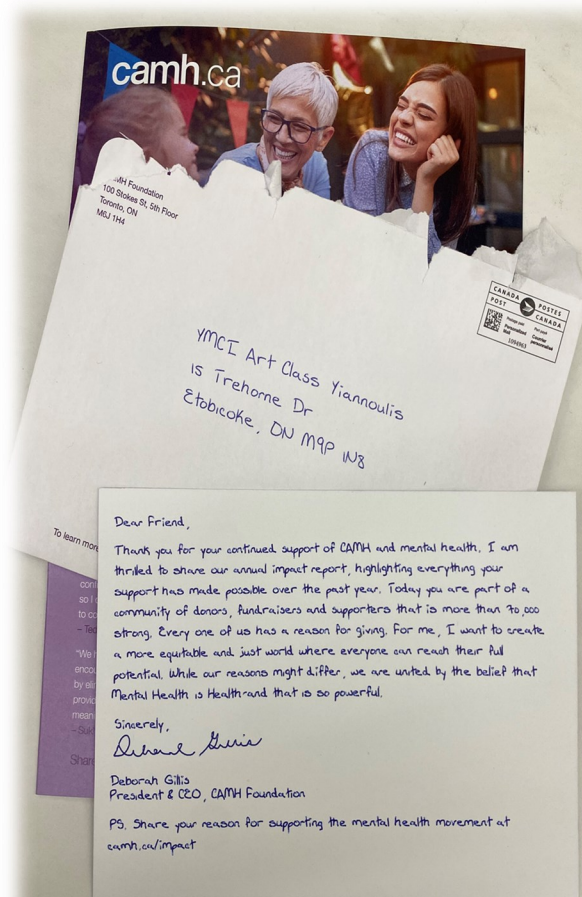 camh.ca
MH Foundation
100 Stokes St, 5th Floor
Toronto, ON
M6J 1H4
CANADA POSTES
POST CANADA
Postage paid Port payé
Personalized Counter
Mail personnalisé
1094963
YMCI Art Class Yiannoulis
15 Trehorne Dr
Etobicoke, ON M9P 1N8
To learn more
Dear Friend,
Thank you for your continued support of CAMH and mental health. I am
thrilled to share our annual impact report, highlighting everything your
support has made possible over the past year. Today you are part of a
community of donors, fundraisers and supporters that is more than 70,000
strong. Every one of us has a reason for giving. For me, I want to create
a more equitable and just world where everyone can reach their full
potential. While our reasons might differ, we are united by the belief that
Mental Health is Health-and that is so powerful.
Sincerely,
Deborah Gillis
Deborah Gillis
President & CEO, CAMH Foundation
PS. Share your reason for supporting the mental health movement at
camh.ca/impact
so I
to co
– Ted
"We h
encou
by eli
provid
mean
Share